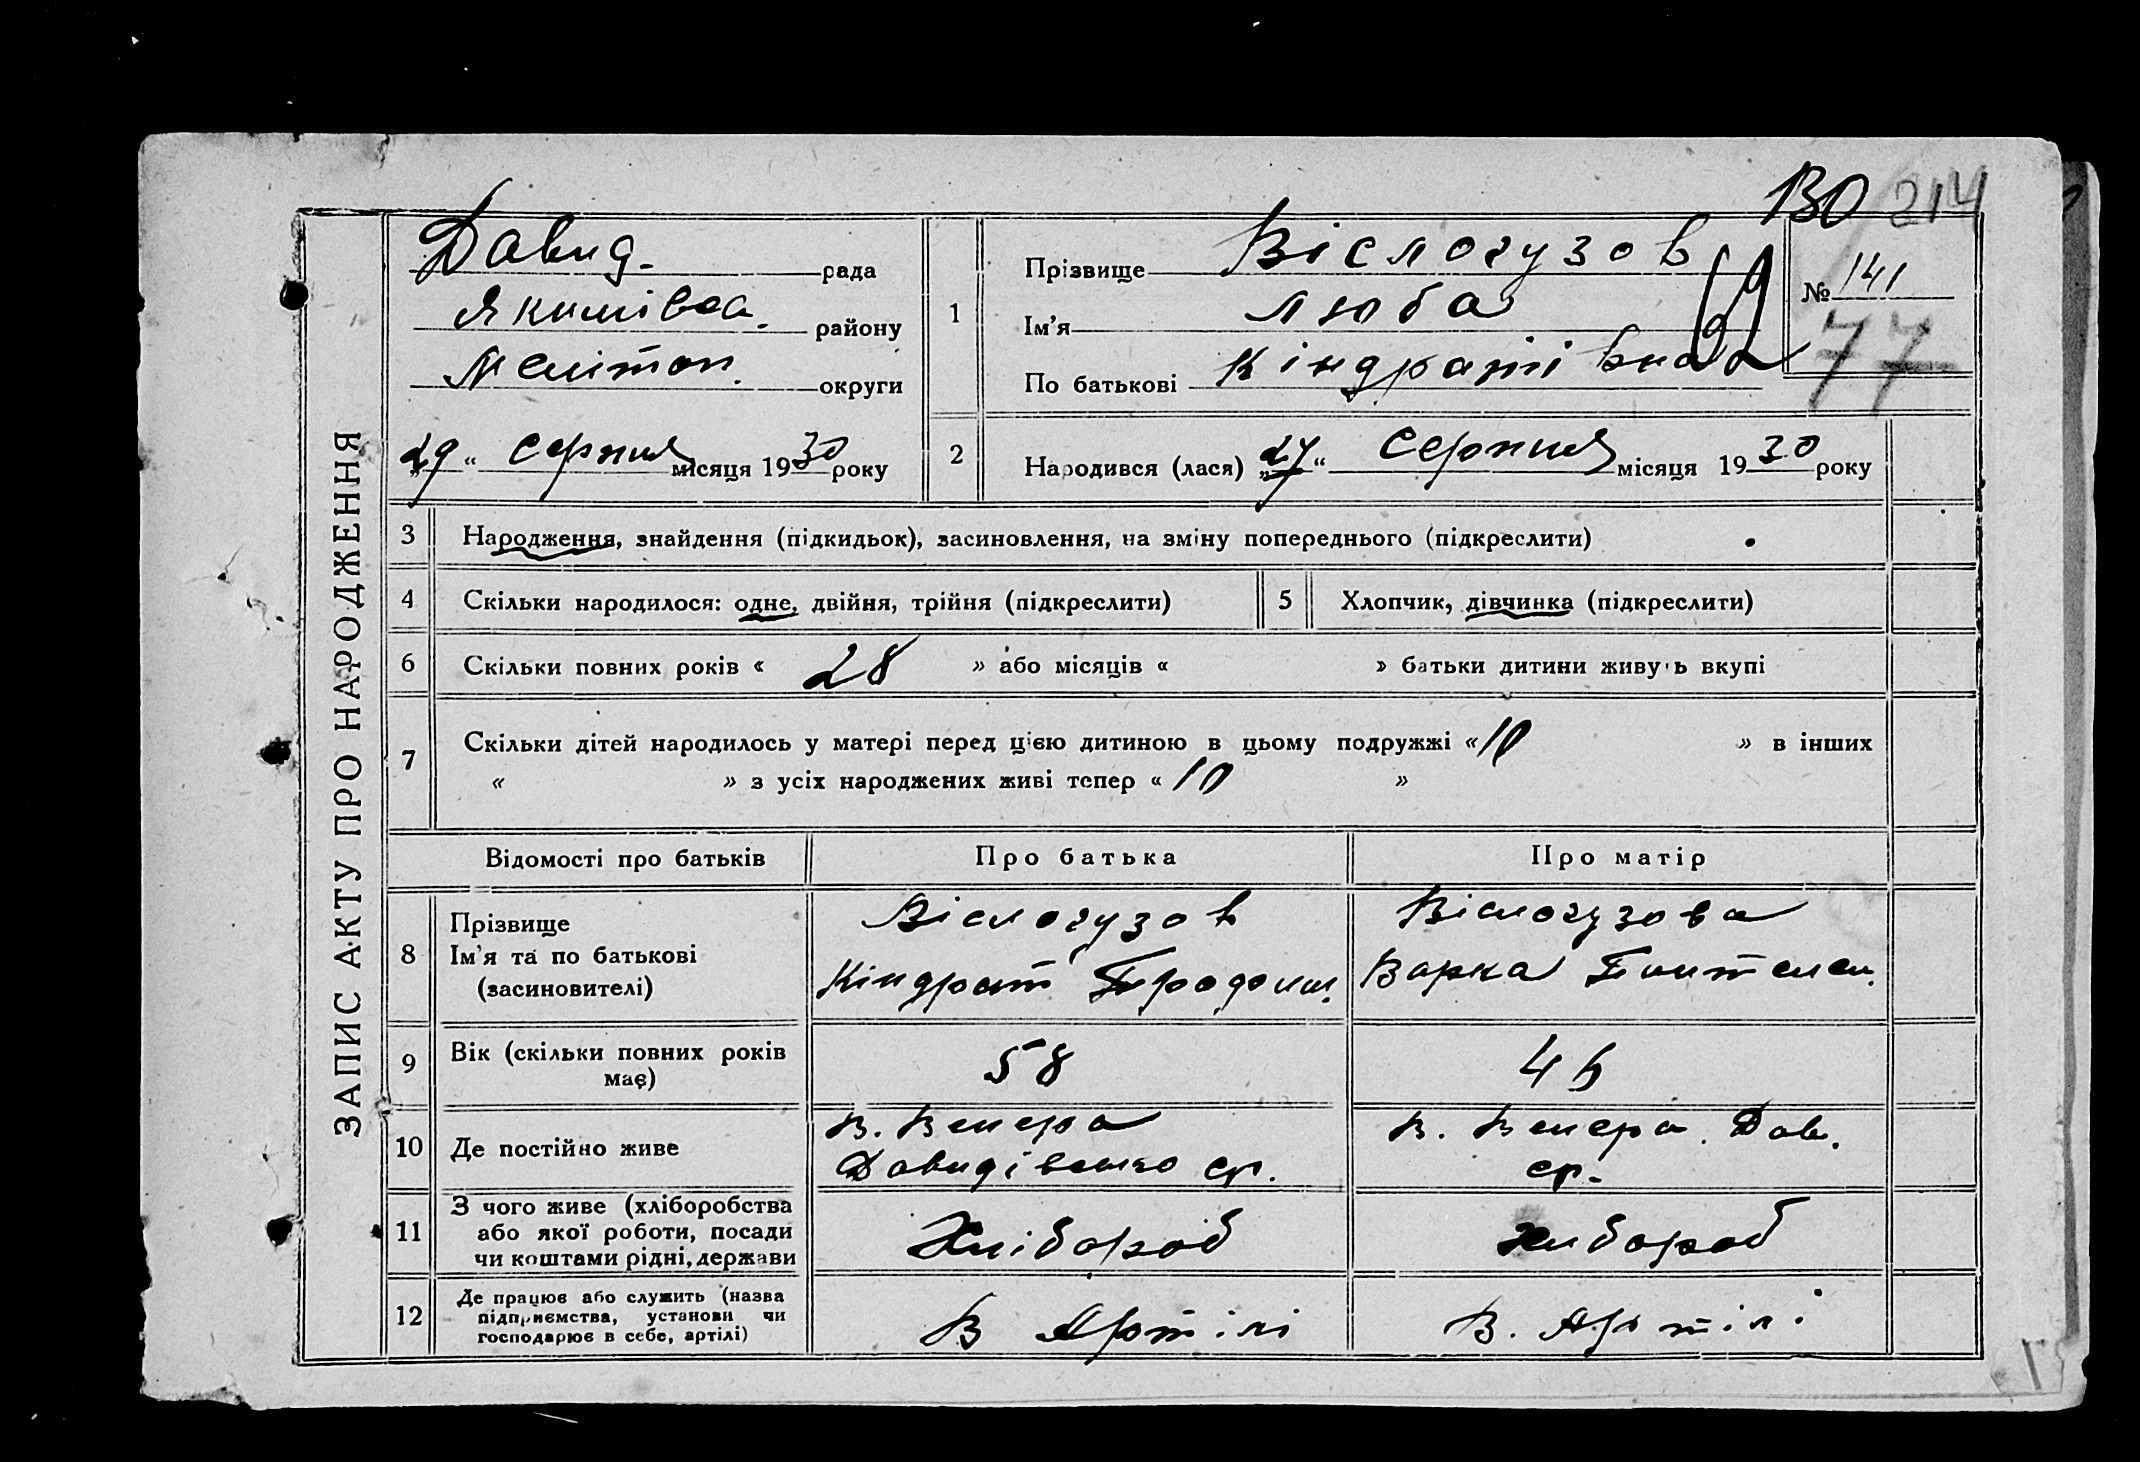 130 214
Давид. рада
Якимівськ. району
Меліtоп. округи
„29“ Серпня місяця 1930 року
1
Прізвище Віслогузов
Ім'я Люба
По батькові Кіндратівна
№ 141
77
2
Народився (лася) „27“ Серпня місяця 1930 року
ЗАПИС АКТУ ПРО НАРОДЖЕННЯ
3 Народження, знайдення (підкидьок), засиновлення, на зміну попереднього (підкреслити)
4 Скільки народилося: одне, двійня, трійня (підкреслити) 5 Хлопчик, дівчинка (підкреслити)
6 Скільки повних років « 28 » або місяців « » батьки дитини живуть вкупі
7 Скільки дітей народилось у матері перед цією дитиною в цьому подружжі «10 » в інших
« » з усіх народжених живі тепер « 10 »
Відомості про батьків Про батька Про матір
8
Прізвище
Ім'я та по батькові
(засиновителі)
Віслогузов
Кіндрат
Віслогузова
Варка Пантелем.
9
Вік (скільки повних років
має)
58
46
10 Де постійно живе
В. Венера
Давидівсько ср.
В. Венера. Дав.
ср.
11
З чого живе (хліборобства
або якої роботи, посади
чи коштами рідні, держави
Хлібороб
хлібороб
12
Де працює або служить (назва
підприємства, установи чи
господарює в себе, артілі)
В Артілі
В. Артілі